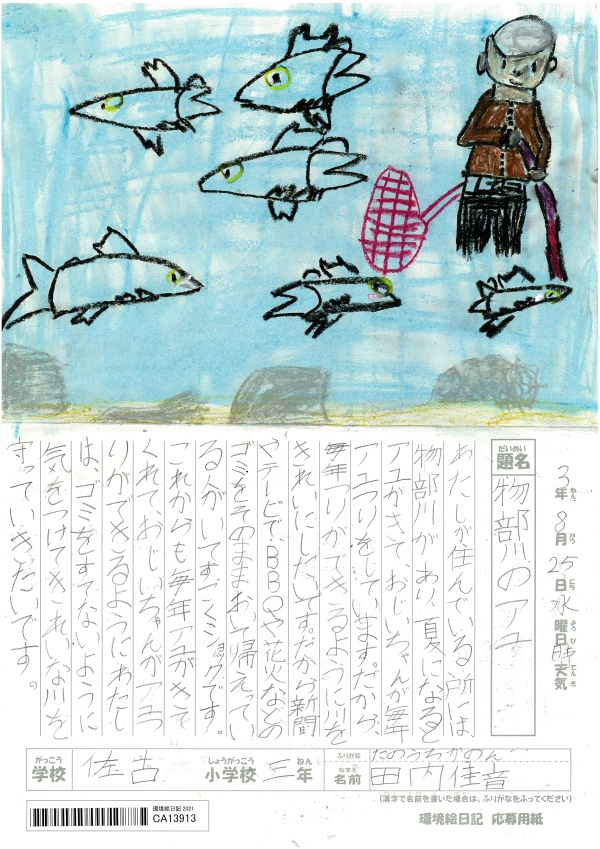 3年ねん 8月がつ 25日にち 水曜日ようび 晴天気てんき
題名だいめい 物部川のアユ
わたしが住んでいる所には、
物部川があり、夏になると
アユがきて、おじいちゃんが毎年
アユつりをしています。だから、
毎年つりができるように川を
きれいにしたいです。だから新聞
やテレビでBBQや花火などの
ゴミをそのままおいて帰えってい
る人がいてすごくショックです。
これからも毎年アユがきて
くれて、おじいちゃんがアユつ
りができるようにわたし
は、ゴミをすてないように
気をつけてきれいな川を
守っていきたいです。
学校がっこう 佐古 小学校しょうがっこう 三年ねん
ふりがな たのうちかのん
名前なまえ 田内佳音
(漢字で名前を書いた場合は、ふりがなをふってください)
環境絵日記 2021
CA13913
環境絵日記 応募用紙